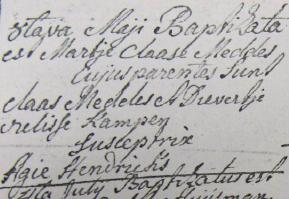 Octava Maji Baptizata
est Martje Claase Meddes
cujus parentes sunt
Claas Medeles et Dievertje
Nelisse Kampen
Susceptrix
Agie Hendricks
July Baptizatus est